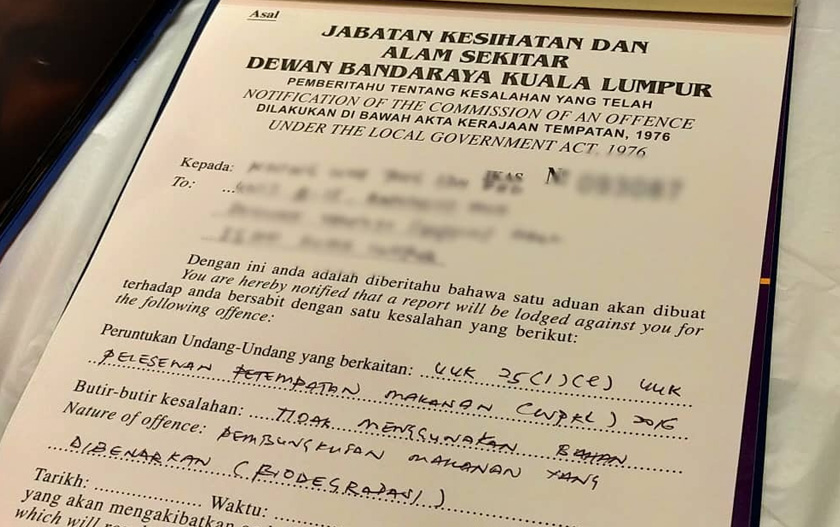 Asal
JABATAN KESIHATAN DAN
ALAM SEKITAR
DEWAN BANDARAYA KUALA LUMPUR
PEMBERITAHU TENTANG KESALAHAN YANG TELAH
NOTIFICATION OF THE COMMISSION OF AN OFFENCE
DILAKUKAN DI BAWAH AKTA KERAJAAN TEMPATAN, 1976
UNDER THE LOCAL GOVERNMENT ACT, 1976
Kepada:
To:
Dengan ini anda adalah diberitahu bahawa satu aduan akan dibuat
You are hereby notified that a report will be lodged against you for
terhadap anda bersabit dengan satu kesalahan yang berikut:
the following offence:
Peruntukan Undang-Undang yang berkaitan: UUK 35(1)(e) UUK
PELESENAN PETEMPATAN MAKANAN (WPKL) 2016
Butir-butir kesalahan: TIDAK MENGGUNAKAN BAHAN
Nature of offence: PEMBUNGKUSAN MAKANAN YANG
DIBENARKAN (BIODEGRADASI)
Tarikh: Waktu:
yang akan mengakibatkan
which will